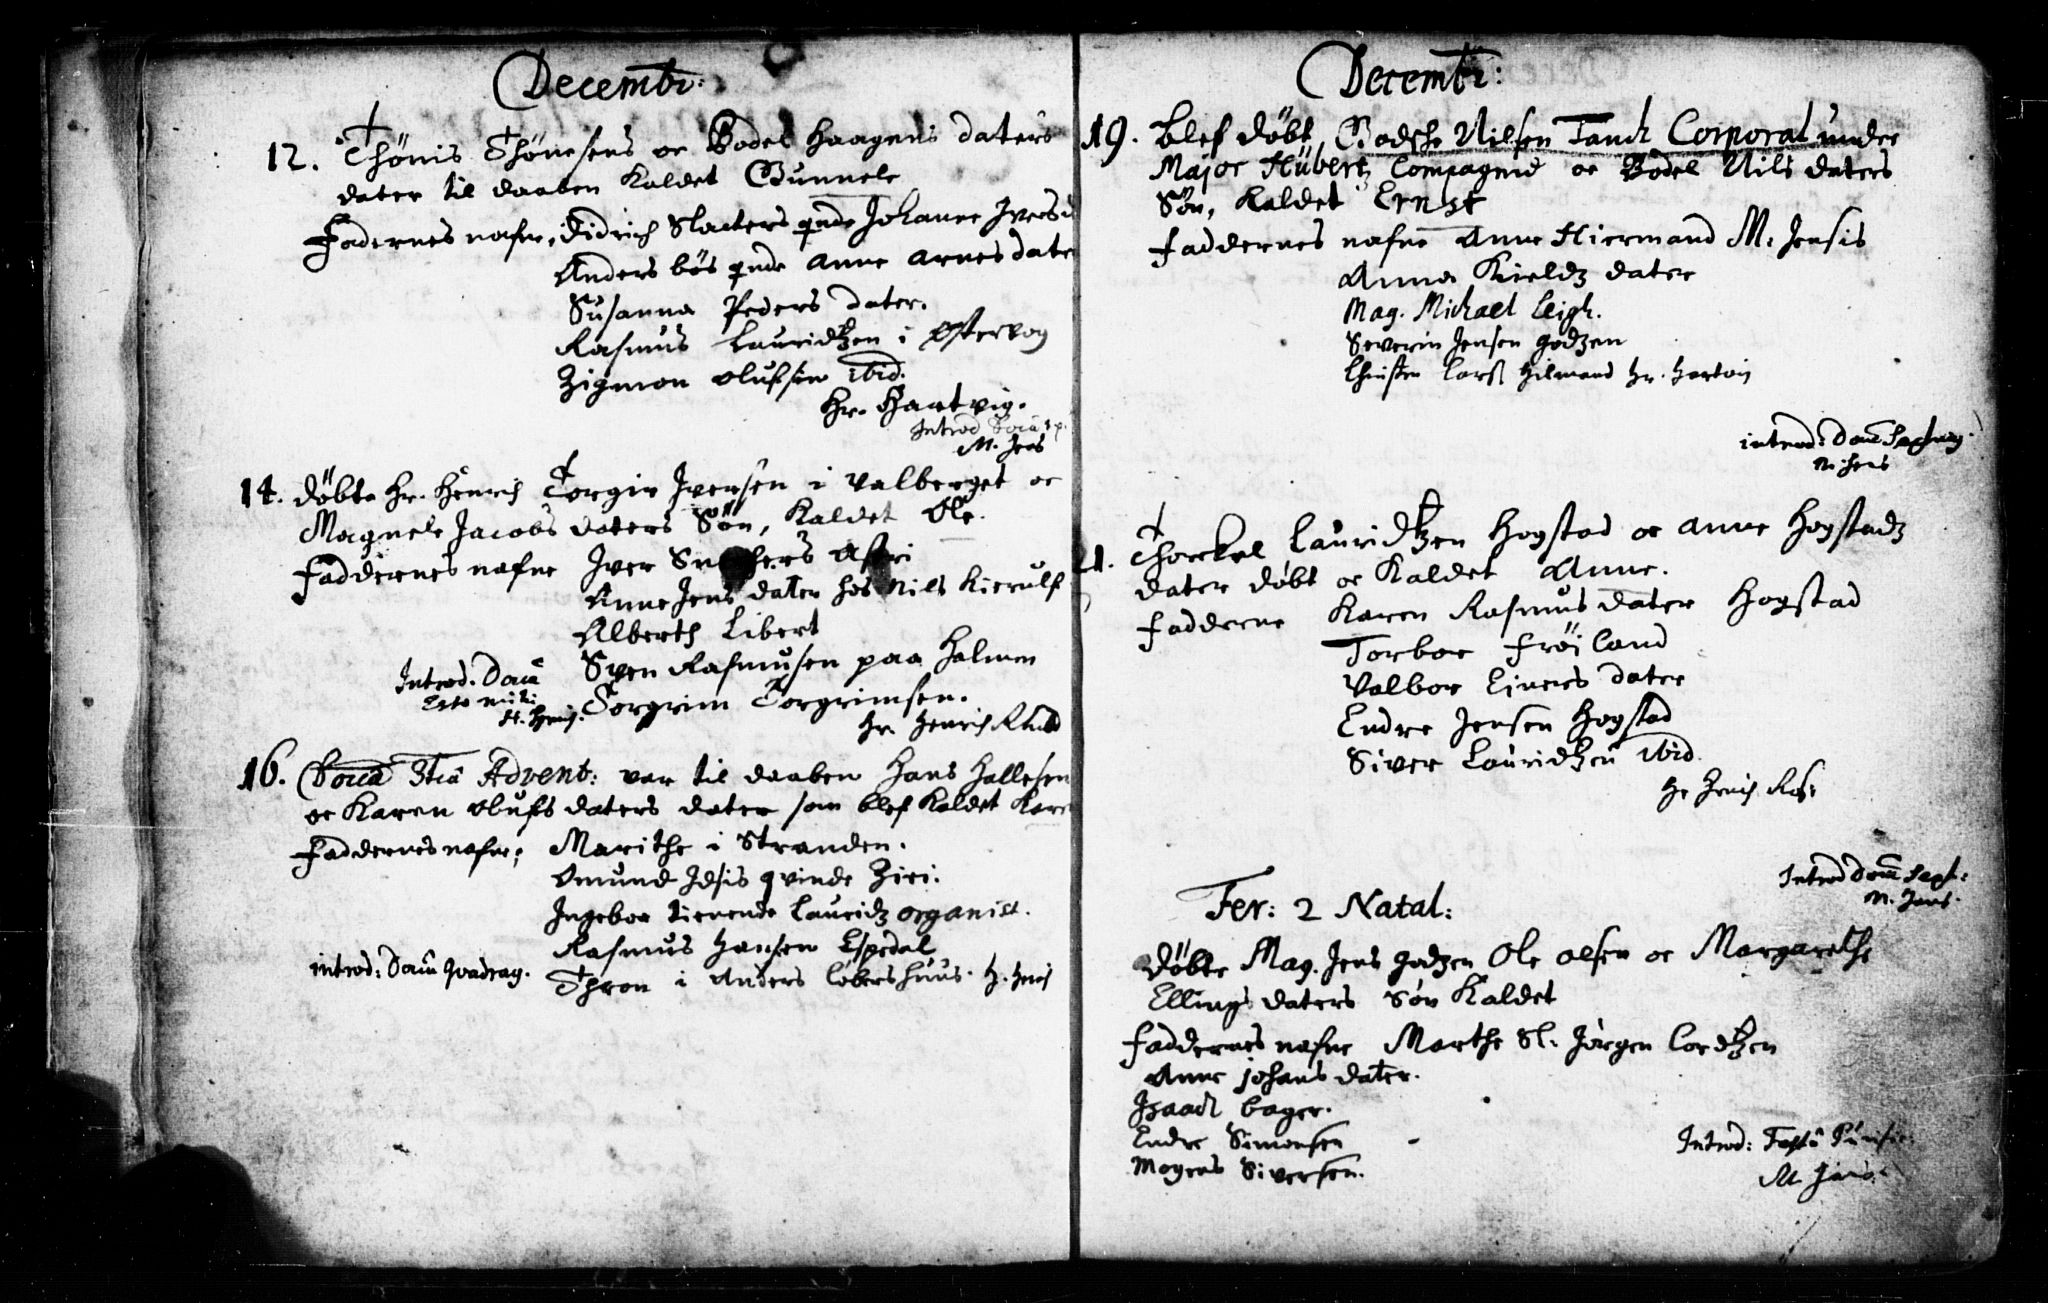 Decembr:
12. Thönis Thönesens oc Bodel Haagens daters
dater til daaben kaldet Gunnele
Fadernes nafne, Didrich Slacters qnde Johanne Ivers
Anders bös qnde Anne Arnes date
Susanna Peders dater.
Rasmus Lauridtzen i Østervog
Zigmon Olufsen ibid.
Hr. Hartvig.
Introd
M. Jens
14. döbte Hr. Henrich Torgir Iversen i Valberget oc
Magnele Jacobs daters Sön, kaldet Ole.
Faddernes nafne Iver
Anne Jens dater hos Nils Kierulf
Alberth Libert
Sven Rasmusen paa Holmen
Introd. Dom
Esto mihi
H. Henr.
Torgrim Torgrimsen.
Hr. Henrich
16. Doica 3tia Advent: var til daaben Hans Hallesen
oc Karen Olufs daters dater som blef kaldet Kare
Faddernes nafne; Marithe i Stranden.
Omund Idsis qvinde Ziri.
Ingebor tienende Lauridz organist.
Rasmus Hansen Espedal
introd: Dom Qvadrag.
Thron i Anders löbers huus. H. Henr
Decembr:
19. Blef döbt Godsche Nilsen Tanck Corporal under
Major Hübertz Compagnie oc Bodel Nils daters
Sön, kaldet Ernst
Faddernes nafne Anne Hiermand M. Jensis
Anna Kieldz dater
Mag. Michael Leigh.
Severin Jensen Godzen
Christen Lars Hilmand Hr. Hartvig
introd: Dom Septuag.
M. Jens
21. Thorkel Lauridtzen Hogstad oc Anne Hogstadz
dater döbt oc kaldet Anne.
Fadderne Karen Rasmus dater Hogstad
Torbor Fröiland
Valbor Einers dater
Endre Jensen Hogstad
Siver Lauridtzen ibid.
Hr Henr
Introd Dom Sept:
M. Jens.
Fer: 2 Natal:
döbte Mag. Jens Godzen Ole Olsen oc Margarethe
Ellings daters Sön kaldet
Faddernes nafne Marthe Sl. Jörgen Cordtzen
Anne Johans dater.
Isaach bager.
Endre Simonsen
Mogens Siversen.
Introd: Festo Purific.
M. Jens